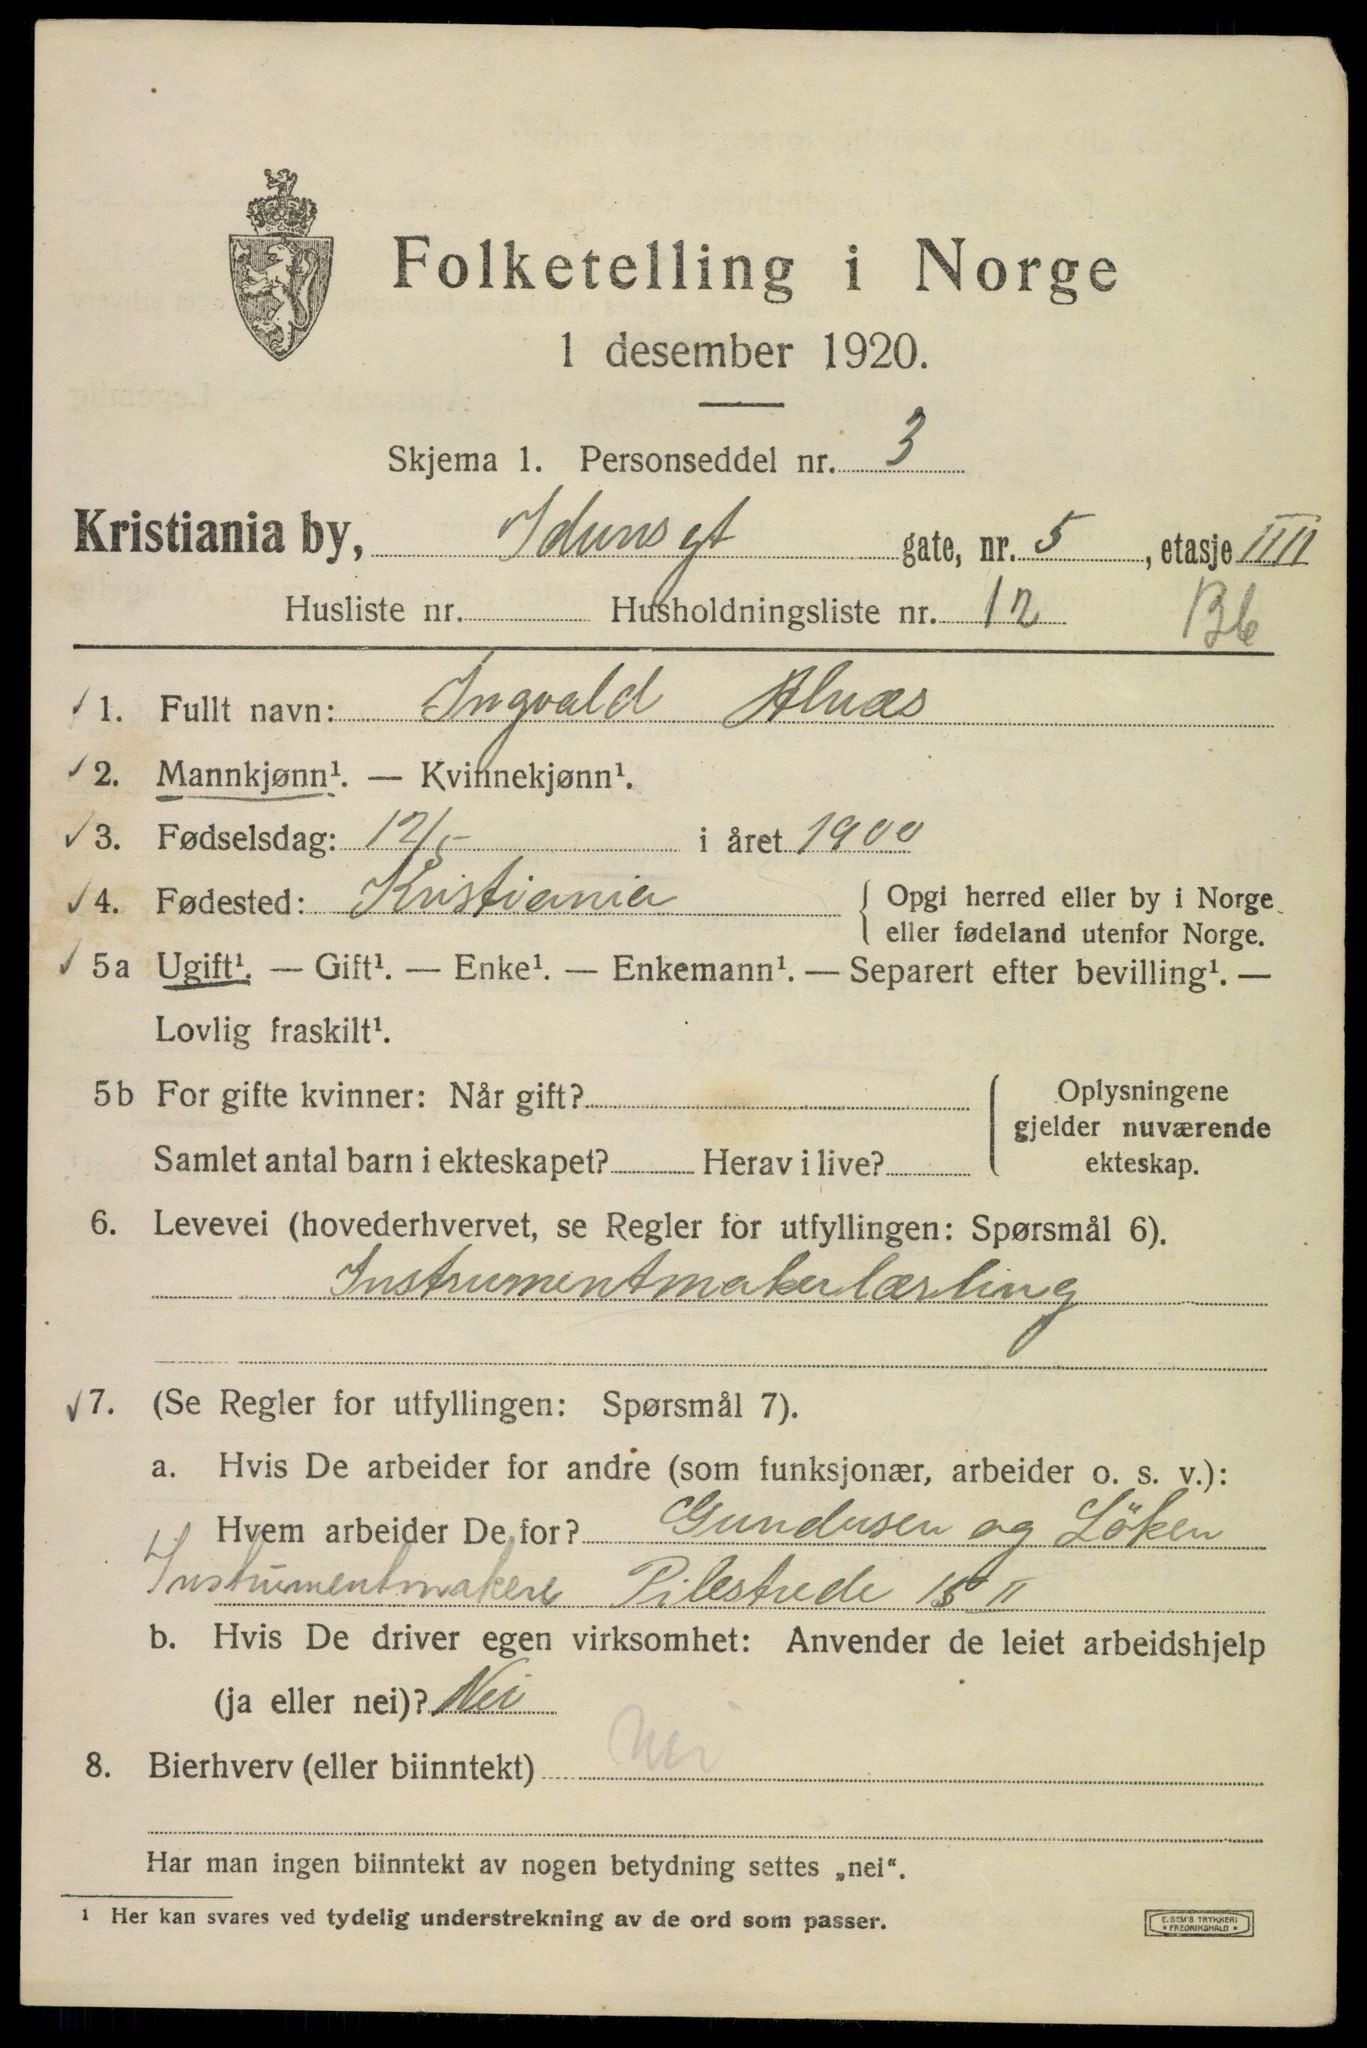 Folketelling i Norge
1 desember 1920.
Skjema 1. Personseddel nr. 3
Kristiania by, Idunsgt gate, nr. 5, etasje IIII
Husliste nr. Husholdningsliste nr. 12 Bb
✓ 1. Fullt navn: Ingvald Alnæs
✓ 2. Mannkjønn¹. — Kvinnekjønn¹.
✓ 3. Fødselsdag: 12/5 i året 1900
✓ 4. Fødested: Kristiania { Opgi herred eller by i Norge
eller fødeland utenfor Norge.
✓ 5a Ugift¹. — Gift¹. — Enke¹. — Enkemann¹. — Separert efter bevilling¹. —
Lovlig fraskilt¹.
5b For gifte kvinner: Når gift? { Oplysningene
gjelder nuværende
Samlet antal barn i ekteskapet? Herav i live? ekteskap.
6. Levevei (hovederhvervet, se Regler for utfyllingen: Spørsmål 6).
Instrumentmakerlærling
✓ 7. (Se Regler for utfyllingen: Spørsmål 7).
a. Hvis De arbeider for andre (som funksjonær, arbeider o. s. v.):
Hvem arbeider De for? Gundersen og Löken
Instrumentmakere Pilestrede 15 II
b. Hvis De driver egen virksomhet: Anvender de leiet arbeidshjelp
(ja eller nei)? Nei
8. Bierhverv (eller biinntekt) Nei
Har man ingen biinntekt av nogen betydning settes „nei“.
¹ Her kan svares ved tydelig understrekning av de ord som passer.
E. SEM'S TRYKKERI
* FREDRIKSHALD *